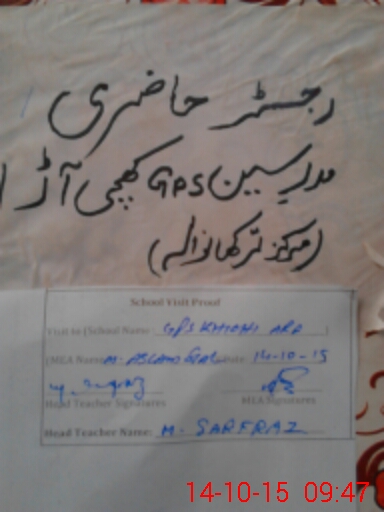 رجسٹر حاضری
مدرسین GPS کھچی آڑا
(مرکز ترکھانوالہ)
School Visit Proof
Visit to (School Name: GPS KHICHI ARA )
(MEA Name: M. ASLAM GUL Date: 14-10-15
Head Teacher Signatures MEA Signatures
Head Teacher Name: M. SARFRAZ
14-10-15 09:47